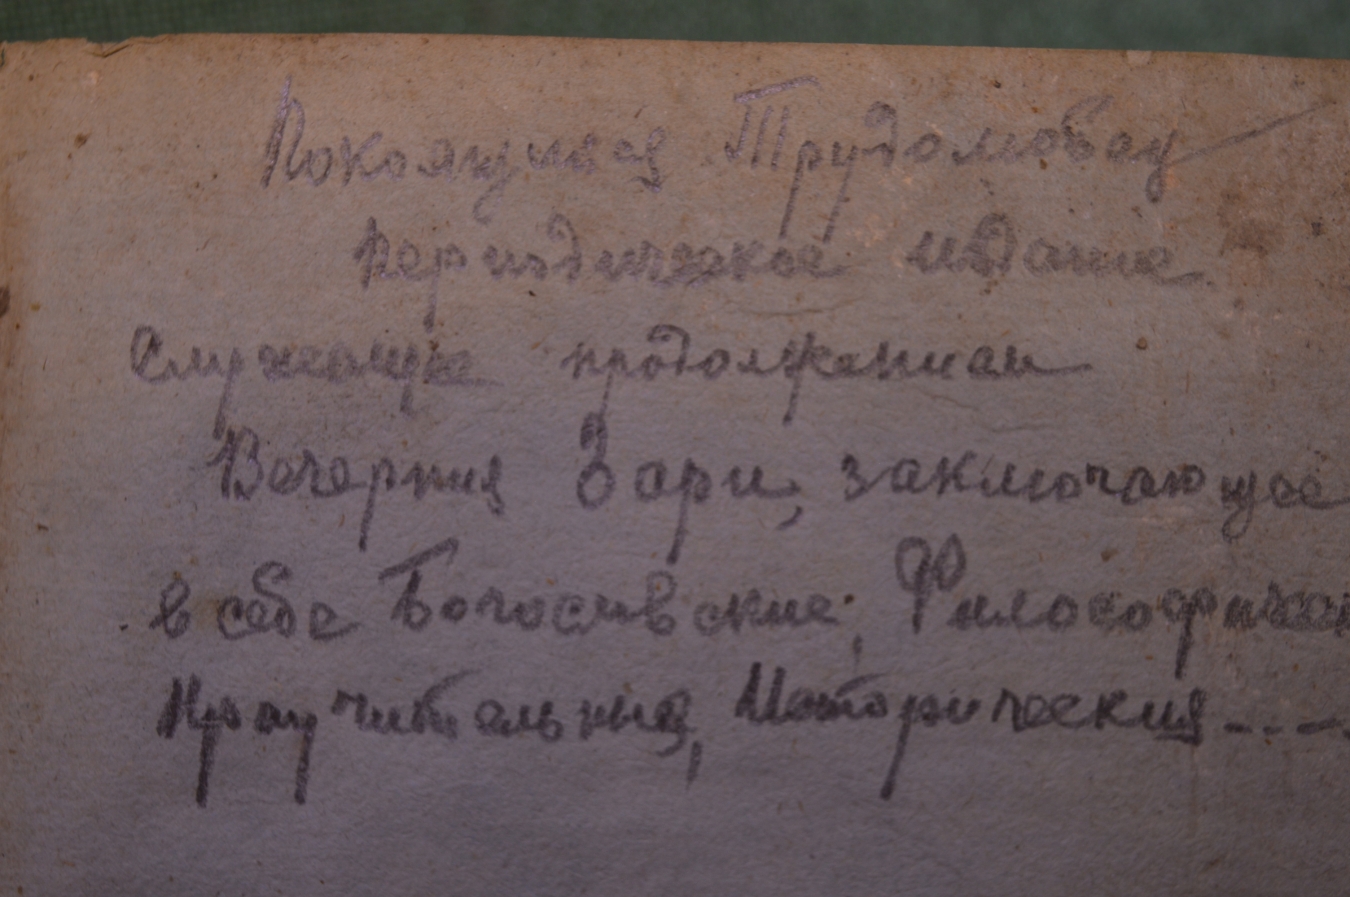 Покоящийся Трудолюбец
периодическое издание
Служащее продолжением
Вечерния Зари, заключающее
в себе Богословские, Философическ
Нраучительныя, Исторический ----